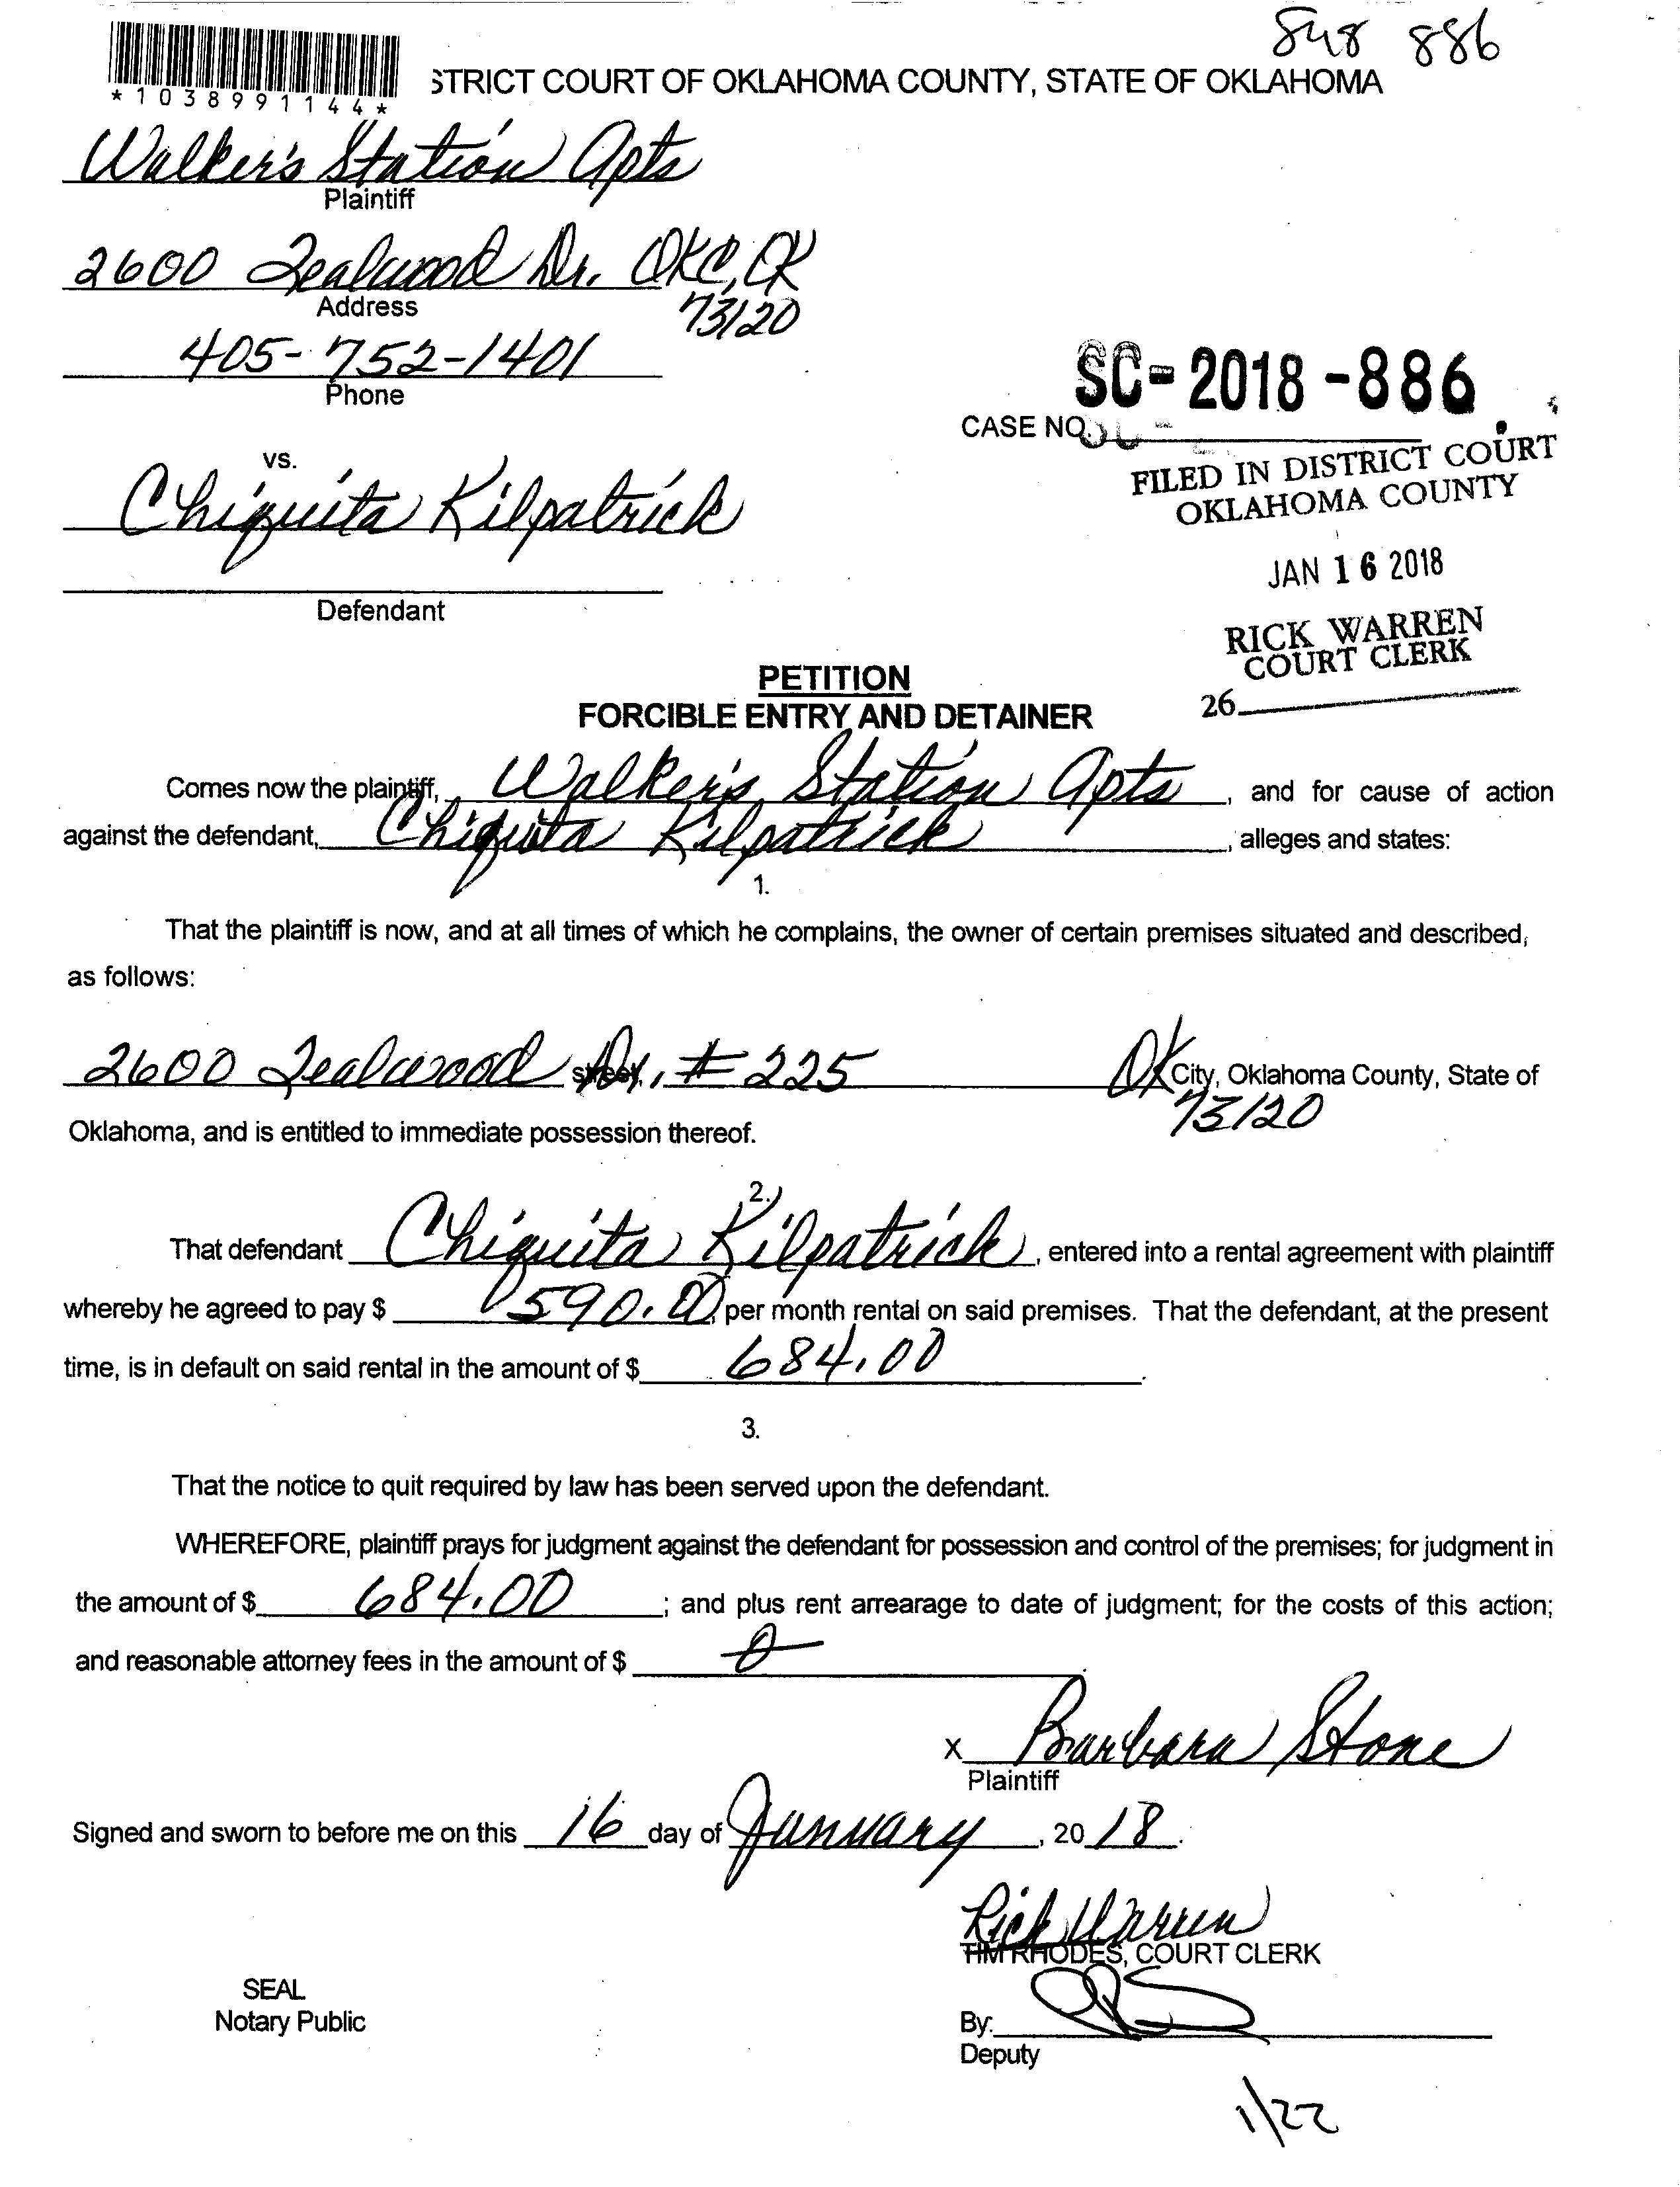 848 886
*1038991144*
STRICT COURT OF OKLAHOMA COUNTY, STATE OF OKLAHOMA
Walker's Station Apts
Plaintiff
2600 Tealwood Dr. OKC, OK
73120
Address
405-752-1401
Phone
SC-2018-886
CASE NO.
FILED IN DISTRICT COURT
OKLAHOMA COUNTY
JAN 16 2018
RICK WARREN
COURT CLERK
26
vs.
Chiquita Kilpatrick
Defendant
PETITION
FORCIBLE ENTRY AND DETAINER
Comes now the plaintiff, Walker's Station Apts, and for cause of action
against the defendant, Chiquita Kilpatrick, alleges and states:
1.
That the plaintiff is now, and at all times of which he complains, the owner of certain premises situated and described,
as follows:
2600 Tealwood Dr, # 225 street, OK City, Oklahoma County, State of
73120
Oklahoma, and is entitled to immediate possession thereof.
2.
That defendant Chiquita Kilpatrick, entered into a rental agreement with plaintiff
whereby he agreed to pay $ 590.00, per month rental on said premises. That the defendant, at the present
time, is in default on said rental in the amount of $ 684.00.
3.
That the notice to quit required by law has been served upon the defendant.
WHEREFORE, plaintiff prays for judgment against the defendant for possession and control of the premises; for judgment in
the amount of $ 684.00; and plus rent arrearage to date of judgment; for the costs of this action;
and reasonable attorney fees in the amount of $ 0.
X Barbara Stone
Plaintiff
Signed and sworn to before me on this 16 day of January, 2018.
Rick Warren
TIM RHODES, COURT CLERK
SEAL
Notary Public
By:
Deputy
1/22